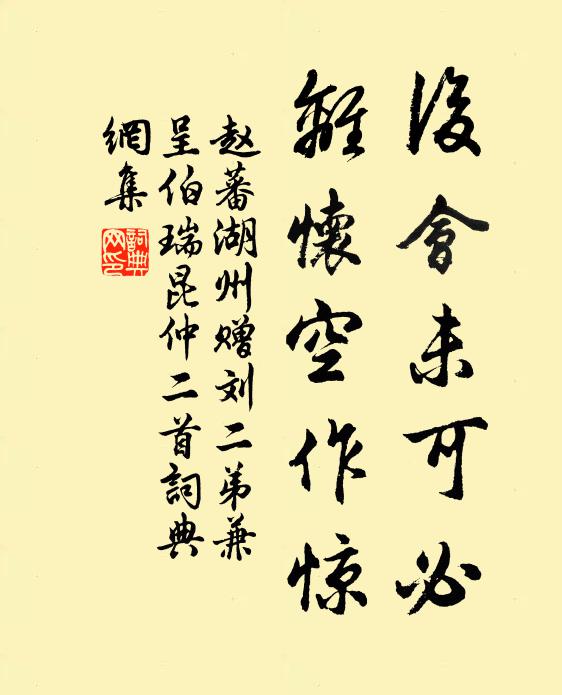 後會未可必
離懷空作惊
赵蕃湖州赠刘二弟兼
呈伯瑞昆仲二首詞典
網集
詞典
网印